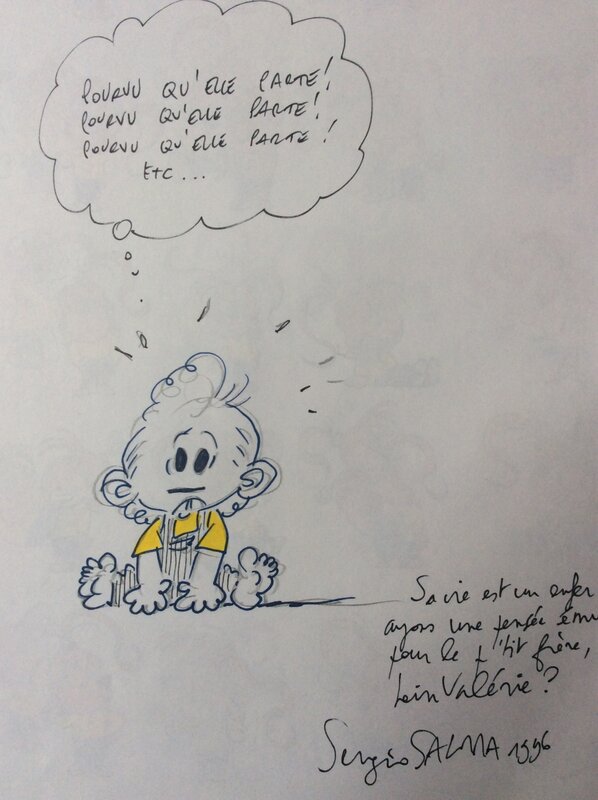 POURVU QU'ELLE PARTE!
POURVU QU'ELLE PARTE!
POURVU QU'ELLE PARTE!
ETC...
Sa vie est un enfer
ayons une pensée ému
pour le p'tit frère,
hein Valérie?
Sergio SALMA 1996